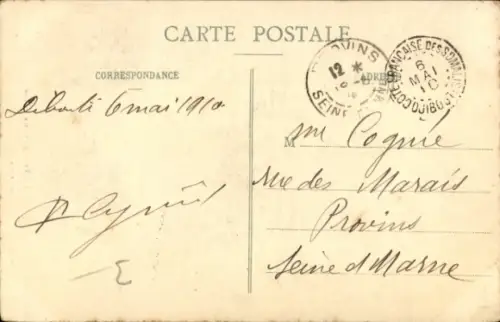 CARTE POSTALE
CORRESPONDANCE
ADRE
PROVINS
12 *
SEINE
CÔTE FRANÇAISE DES SOMALIS
6
MAI
10
DJIBOUTI
Djibouti 6 mai 1910
M me Cognie
rue des Marais
Provins
Seine et Marne